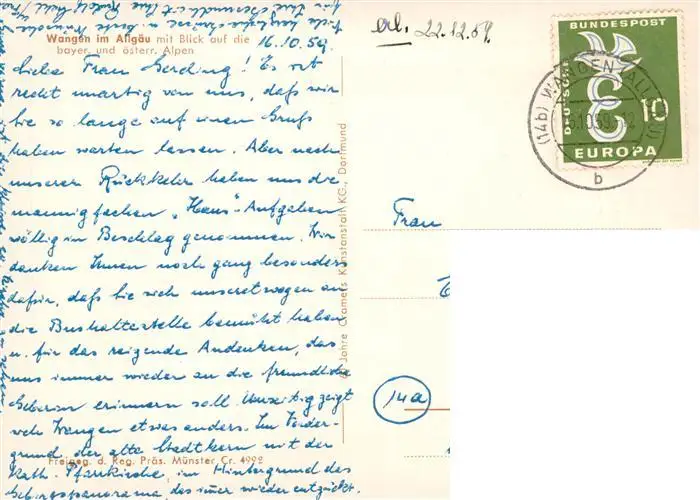 Wangen im Allgäu mit Blick auf die
bayer. und österr. Alpen
16.10.59
Liebe Frau Gerding! Es ist
recht unartig von uns, daß wir
Sie so lange auf einen Gruß
haben warten lassen. Aber nach
unserer Rückkehr haben uns die
mannigfachen „Haus"-Aufgaben
völlig in Beschlag genommen. Wir
danken Ihnen noch ganz besonders
dafür, daß Sie sich unseretwegen an
die Bushaltestelle bemüht haben
u. für das reizende Andenken, das
uns immer wieder an die freundliche
Geberin erinnern soll. Umseitig zeigt
sich Wangen etwas anders. Im Vorder-
grund der alte Stadtkern mit der
Kath. Pfarrkirche, im Hintergrund das
Gebirgspanorama, das immer wieder entzückt.
Freigeg. d. Reg. Präs. Münster Cr. 4992
Jahre Cramers Kunstanstalt KG., Dortmund
erl. 22.12.59.
DEUTSCHE
BUNDESPOST
10
EUROPA
(14b) WANGEN (ALLGÄU)
.10.59
b
Frau
14a